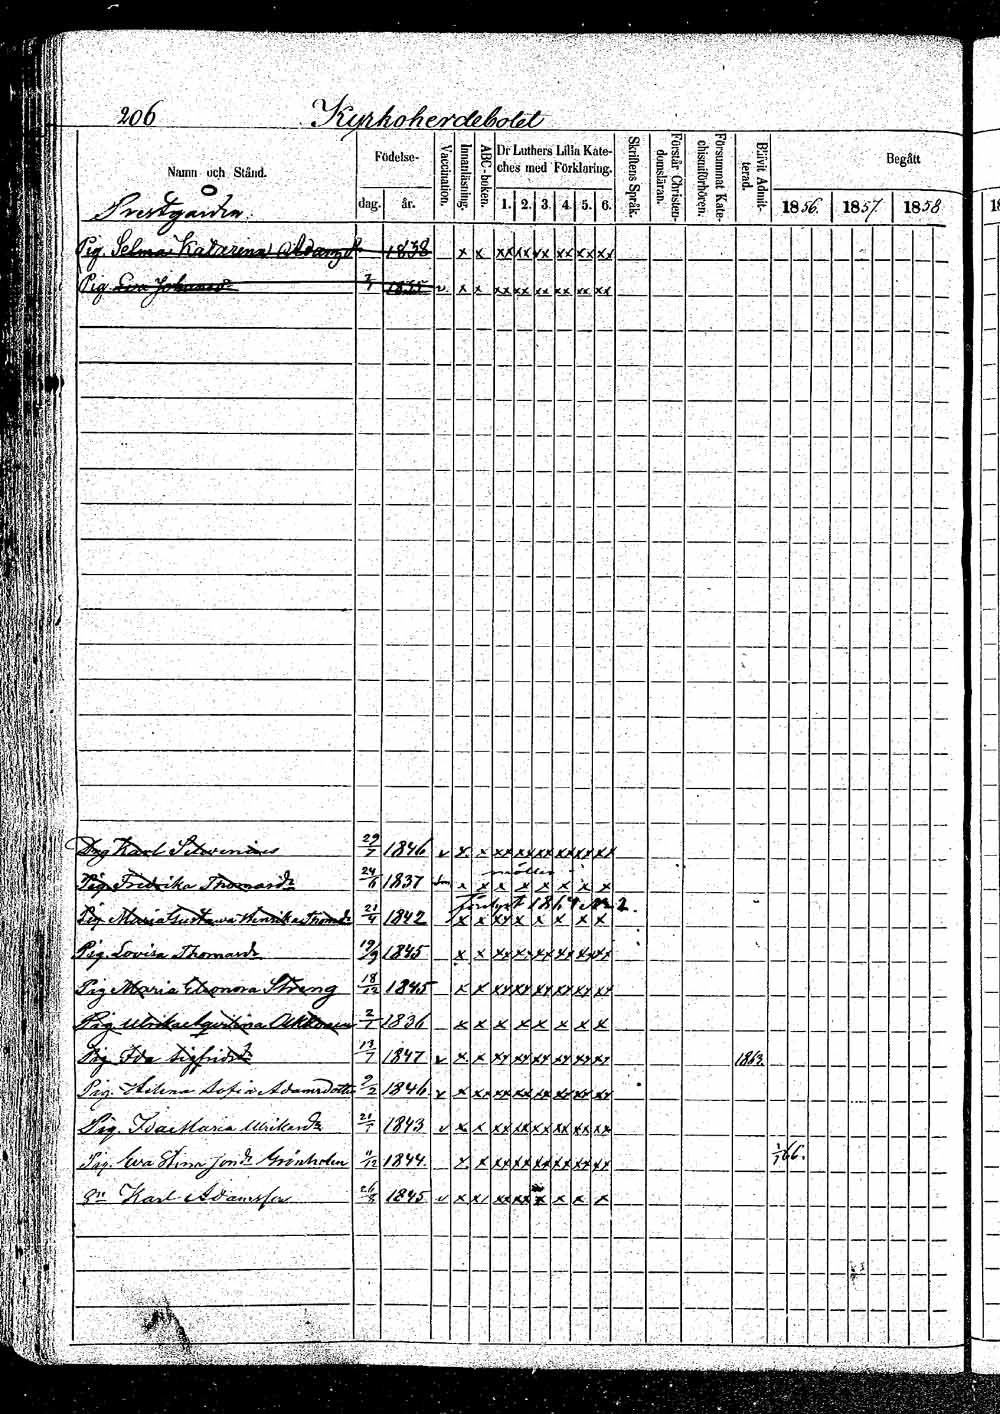 206 Kyrkoherdebolet
Namn och Stånd. Födelse- dag. år. Vaccination. Innanläsning. ABC-boken. Dr Luthers Lilla Kateches med Förklaring. 1. 2. 3. 4. 5. 6. Skriftens Språk. Förstår Christendomsläran. Försummat Katechismiförhören. Blifvit Admitterad. Begått 1856. 1857. 1858
Prestgården.
Pig. Selma Katarena 1838 x x xx xx xx xx xx xx
Pig Eva Johansdr 1835 v. x x xx xx xx xx xx xx
Karl 29/7 1846 v x. x xx xx xx xx xx xx
Pig. Fredrika Thomasdr 24/6 1837 x x x x x x x x
Pig Maria Gustava Henrika Thomasdr 21/4 1842 x x xx x x x x x
Pig. Lovisa Thomasdr 19/9 1845 x x xx xx xx xx xx xx
Pig Maria Eleonora Streng 18/12 1845 x x xx xx xx xx xx xx
Pig Ulrika 2/1 1836 x x x x x x x x
Pig Ida Sigfridsdr 13/7 1847 v x x xx xx xx xx xx xx 1863.
Pig. Helena Sofia Adamsdotter 9/2 1846 v x xx xx xx xx xx xx xx
Pig. Ida Maria Ulriksdr 21/1 1843 v x x xx xx xx xx xx xx
Pig. Eva Stina Jonsdr Grönholm 11/12 1844. x x xx xx xx xx xx xx 1/7 66.
Karl Adamsson 26/8 1845 v x x xx xx x x x x